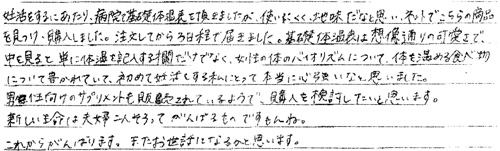 妊活をするにあたり、病院で基礎体温表を頂きましたが、使いにくく、地味だなと思い、ネットでこちらの商品
を見つけ、購入しました。注文してから3日程で届きました。基礎体温表は想像通りの可愛さで、
中を見ると単に体温を記入する欄だけでなく、女性の体のバイオリズムについて、体を温める食べ物
について書かれていて、初めて妊活する私にとって本当に心強いなと思いました。
男性向けのサプリメントも販売されているようで、購入を検討したいと思います。
新しい生命は夫婦二人そろってがんばるものですもんね。
これからがんばります。またお世話になるかと思います。